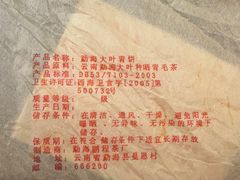 产品名称：勐海大叶青饼
产品原料：云南勐海大叶种晒青毛茶
产品标准：DB53/T103-2003
卫生许可证：西海卫食字[2005]第
500732号
质量等级： 级
生产日期：
储存条件：在清洁、通风、干燥、避免阳光
曝晒、无异味、无污染的环境下
储存。
保质期：在符合储存条件下适宜长期存放
制造商：勐海鹏程茶厂
地址：云南省勐海县曼恩村
邮编：666200